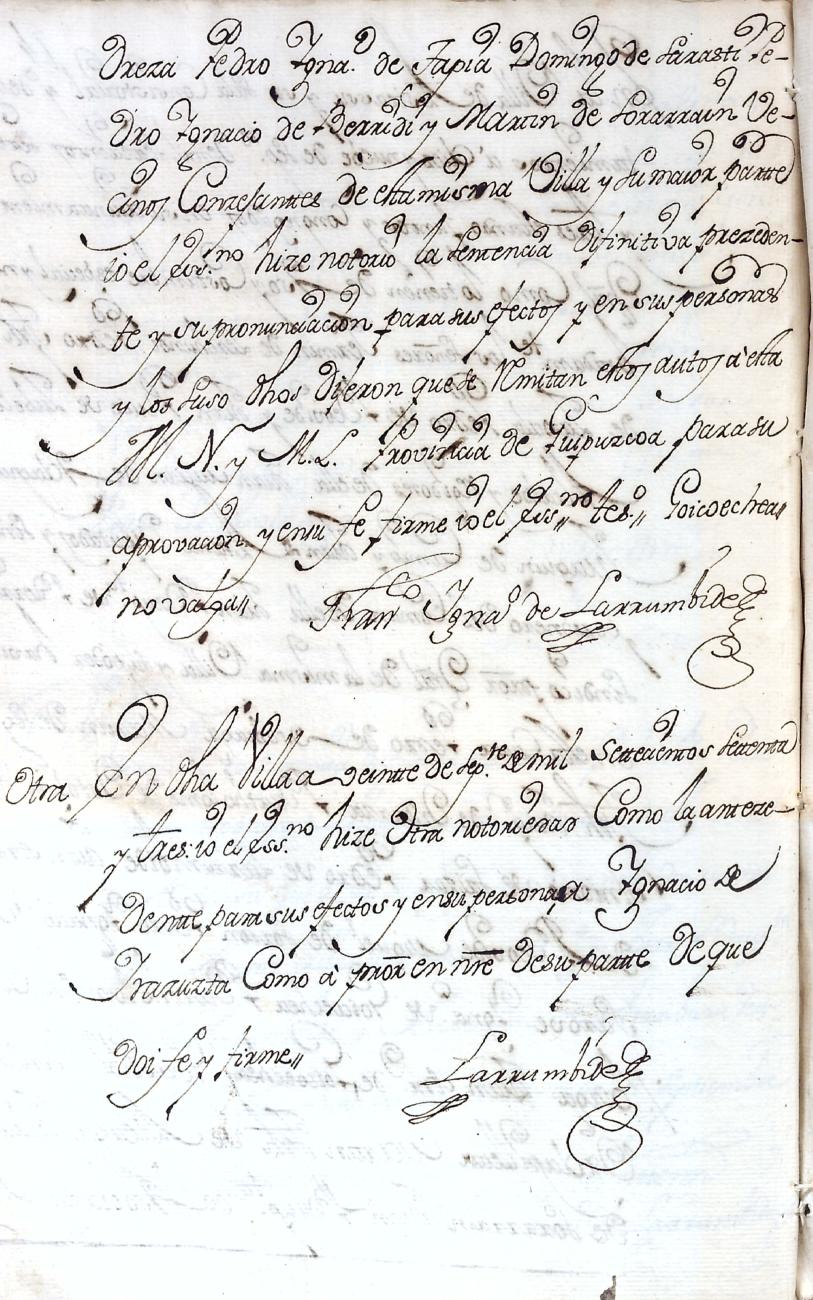 Dreza Pedro Ygna.º de Tapia Domingo de Larasti Pe-
dro Ygnacio de Berridi y Martin de Lorarrain Ve-
cinos Conzesantes de esta misma Villa y su maior parte
io el ess.no hize notorio la sentencia difinitiva prezeden-
te y su pronunciacion para sus efectos y en sus personas
y los suso dhos dijeron que se remitan estos autos à esta
M. N. y M. L. Provincia de Guipuzcoa para su
aprovacion y en su fe firme io el ess.no tesº Goicoechea
no valga
Franco Ygnaº de Larrumbide
Otra En dha Villa a veinte de Sep.te de mil settecientos settenta
y tres: io el ess.no hize Otra notoriedad Como la anteze-
dente para sus efectos y en su persona a Ygnacio de
Yrazuzta Como à pror en nre de su parte de que
doi fe y firme
Larrumbide